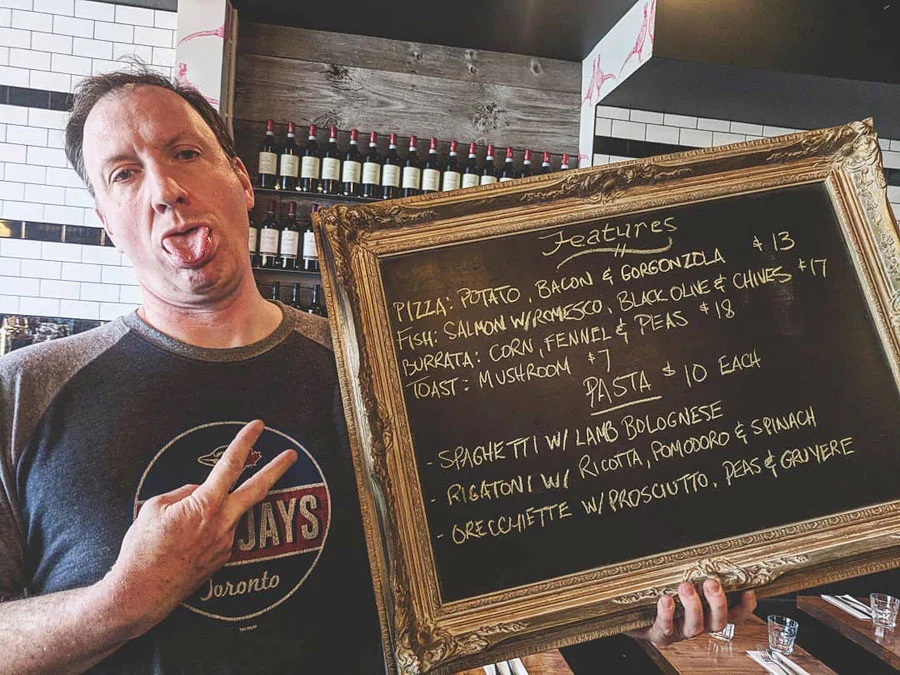 Features
PIZZA: POTATO, BACON & GORGONZOLA $13
FISH: SALMON W/ROMESCO, BLACK OLIVE & CHIVES $17
BURRATA: CORN, FENNEL & PEAS $18
TOAST: MUSHROOM $7
PASTA $10 EACH
- SPAGHETTI W/ LAMB BOLOGNESE
- RIGATONI W/ RICOTTA, POMODORO & SPINACH
- ORECCHIETTE W/PROSCIUTTO, PEAS & GRUYERE
JAYS
Toronto